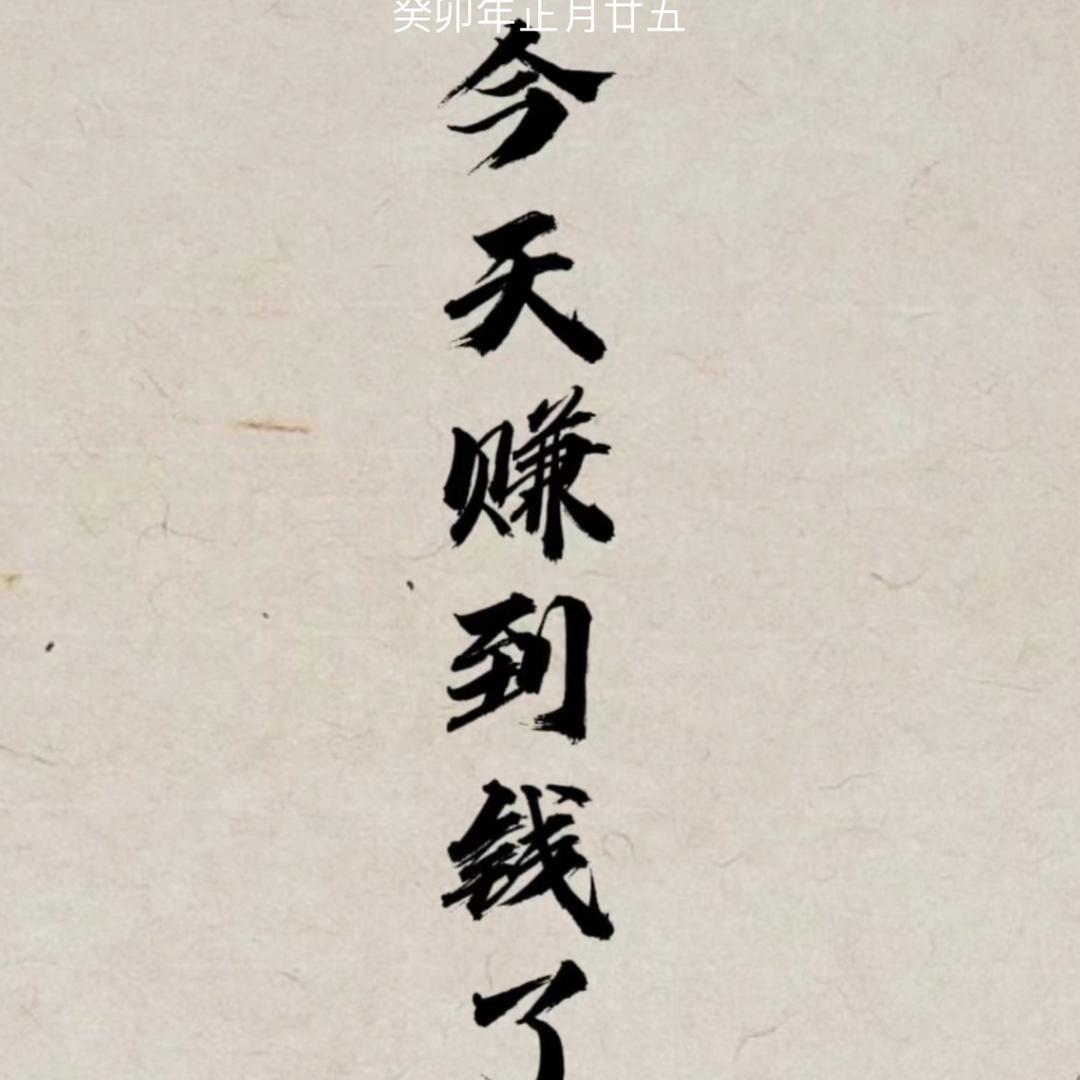 癸卯年正月廿五
今天赚到钱了